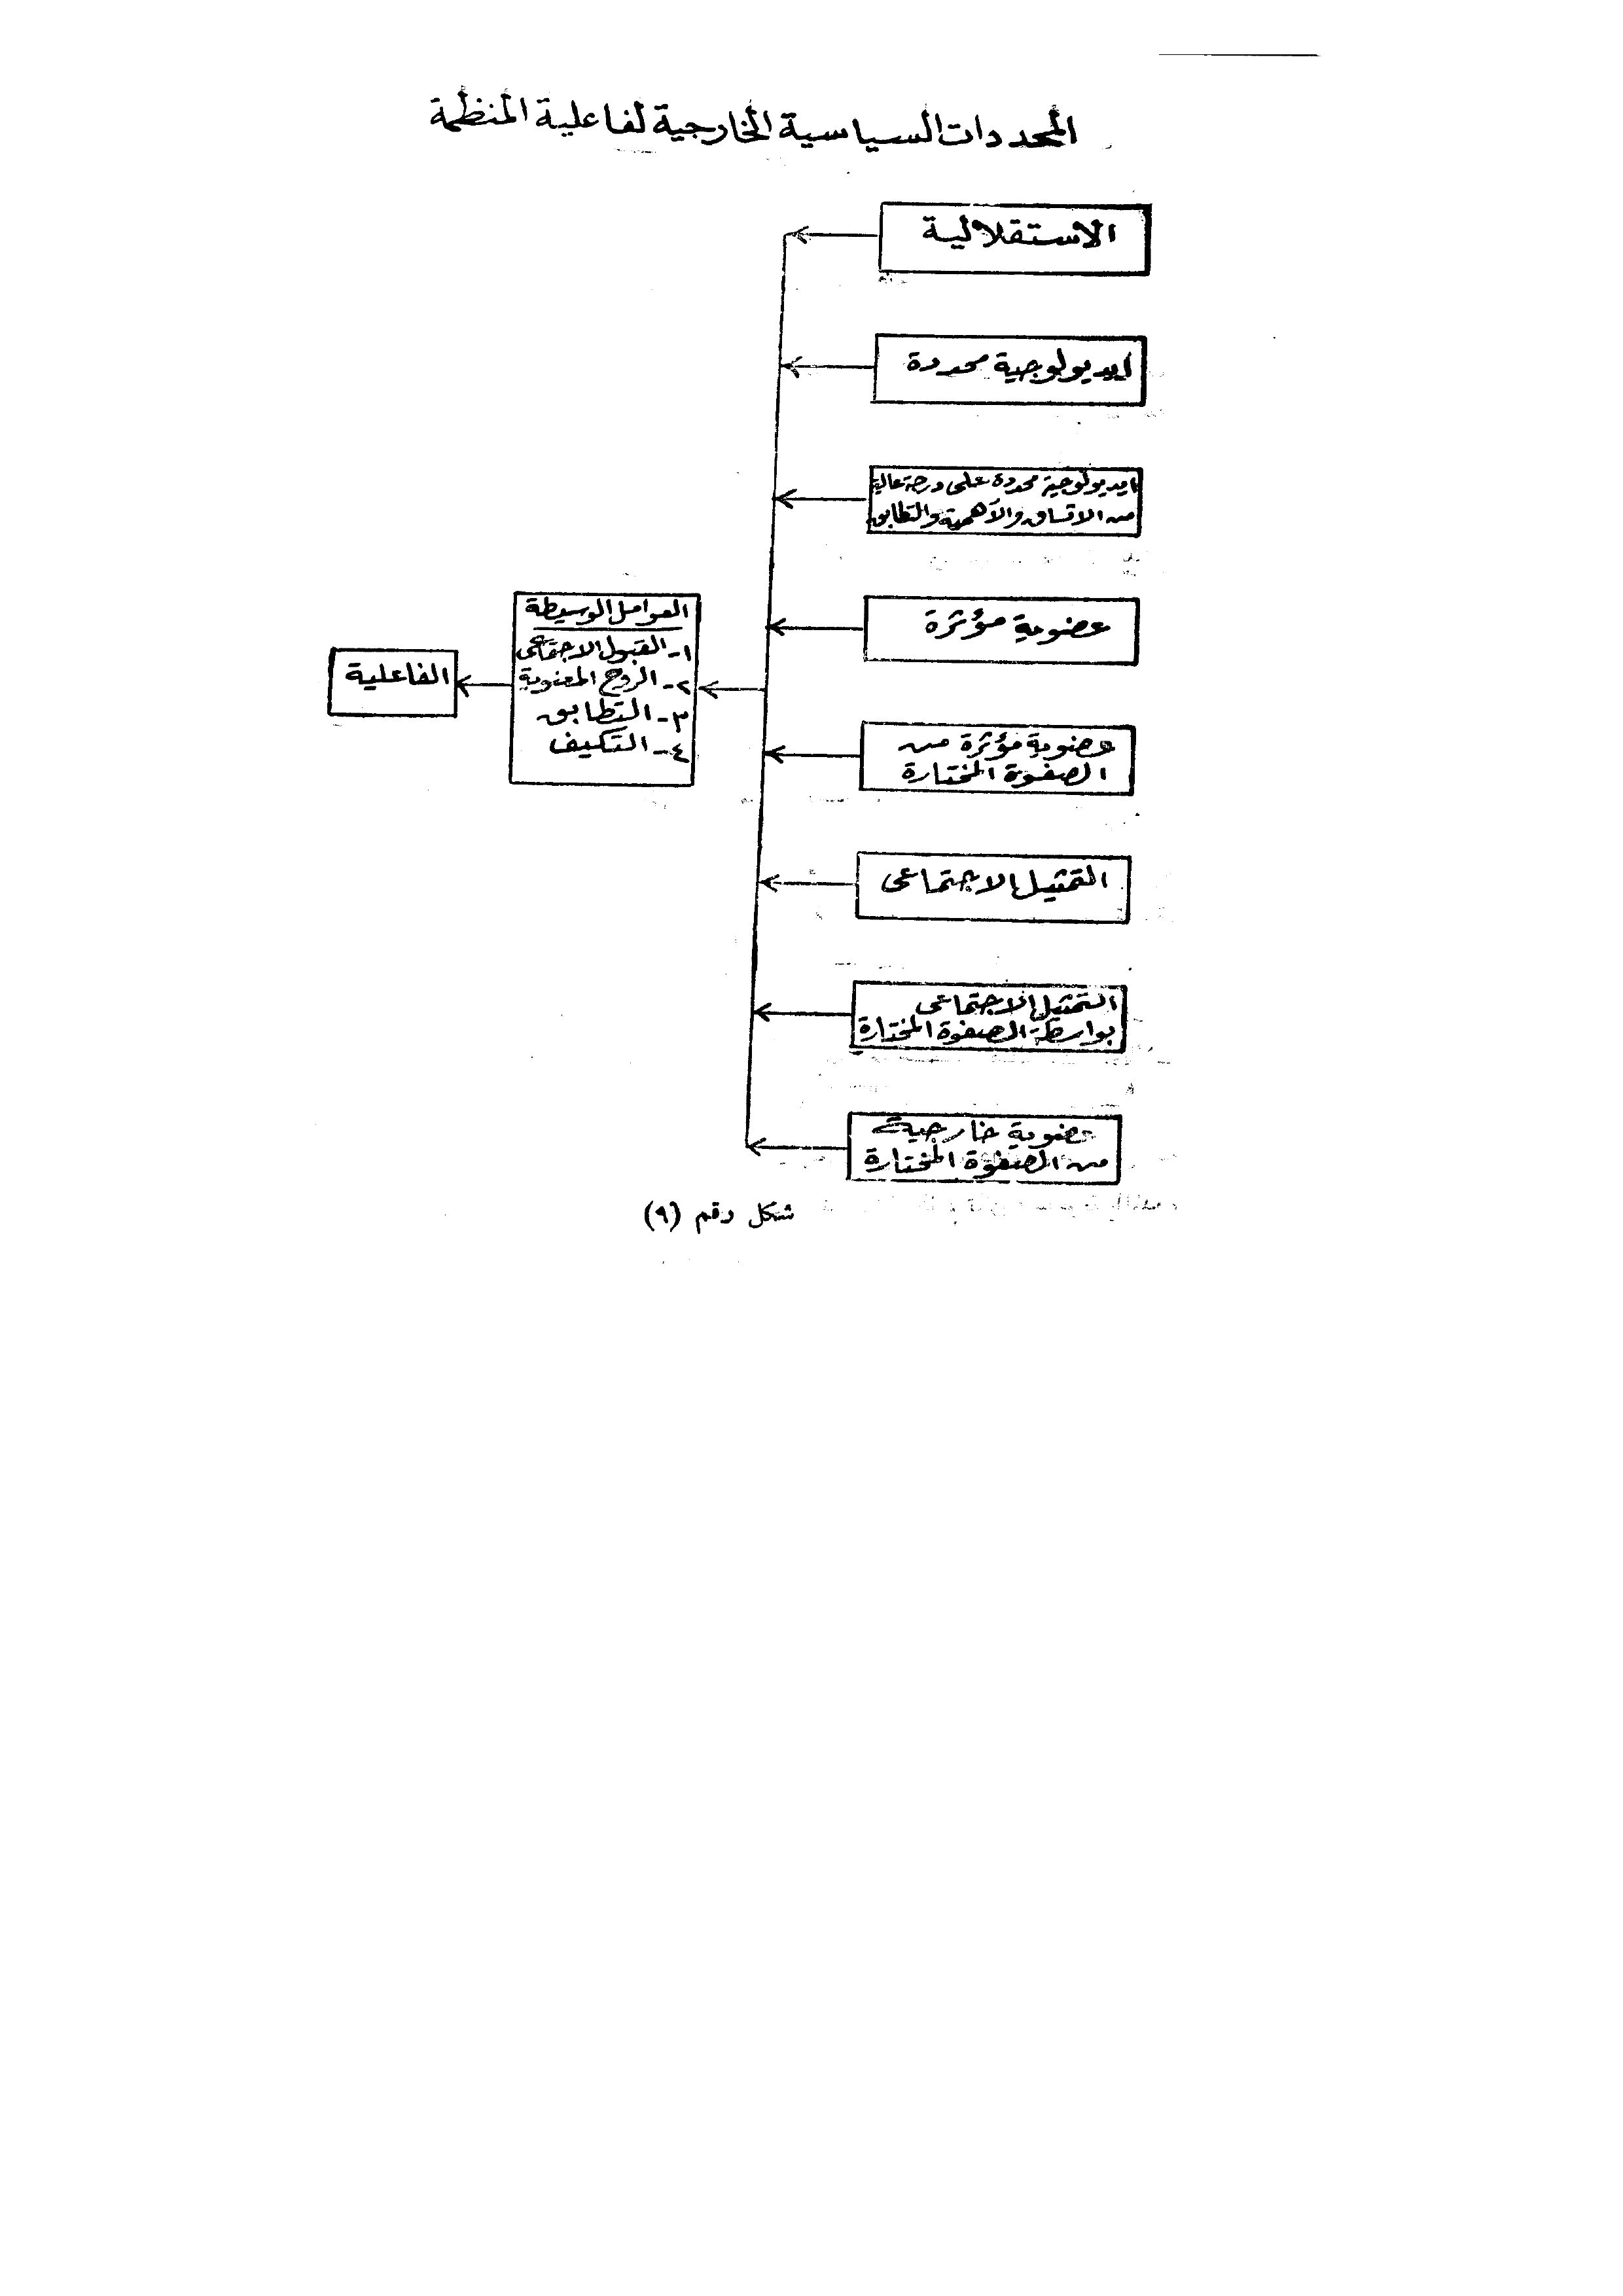 المحددات السياسية الخارجية لفاعلية المنظمة
الاستقلالية
ايديولوجية محددة
ايديولوجية محددة على درجة عالية
من الاتساق والأهمية والتطابق
عضوية مؤثرة
عضوية مؤثرة من
الصفوة المختارة
التمثيل الاجتماعى
التمثيل الاجتماعى
بواسطة الصفوة المختارة
عضوية خارجية
من الصفوة المختارة
العوامل الوسيطة
١- القبول الاجتماعى
٢- الروح المعنوية
٣- التطابق
٤- التكيف
الفاعلية
شكل رقم (٩)